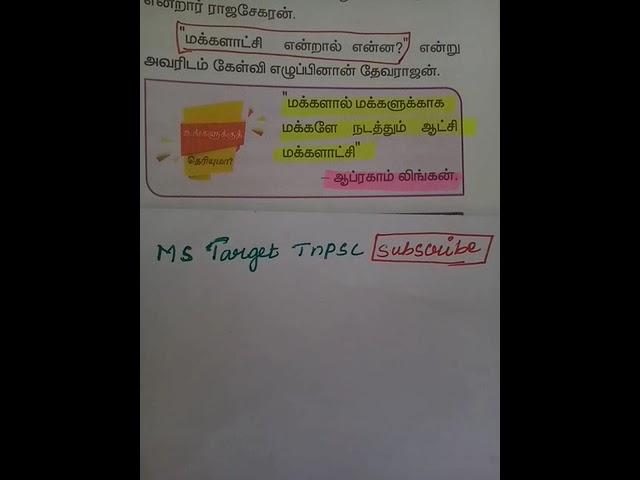 என்றார் ராஜசேகரன்.
"மக்களாட்சி என்றால் என்ன?" என்று
அவரிடம் கேள்வி எழுப்பினான் தேவராஜன்.
உங்களுக்குத்
தெரியுமா?
"மக்களால் மக்களுக்காக
மக்களே நடத்தும் ஆட்சி
மக்களாட்சி"
– ஆப்ரகாம் லிங்கன்.
MS Target TNPSC Subscribe